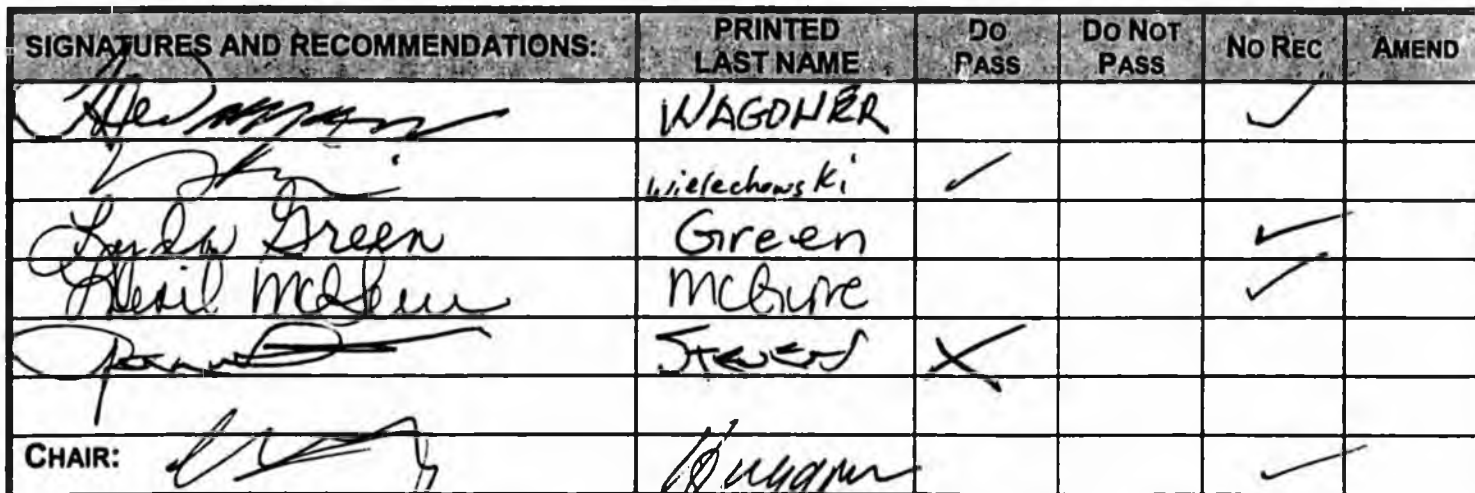 SIGNATURES AND RECOMMENDATIONS: PRINTED LAST NAME DO PASS DO NOT PASS NO REC AMEND
WAGONER ✓
Wielechowski ✓
Lyda Green Green ✓
Lesil McGuire McGuire ✓
Stevens X
CHAIR: Huggins ✓